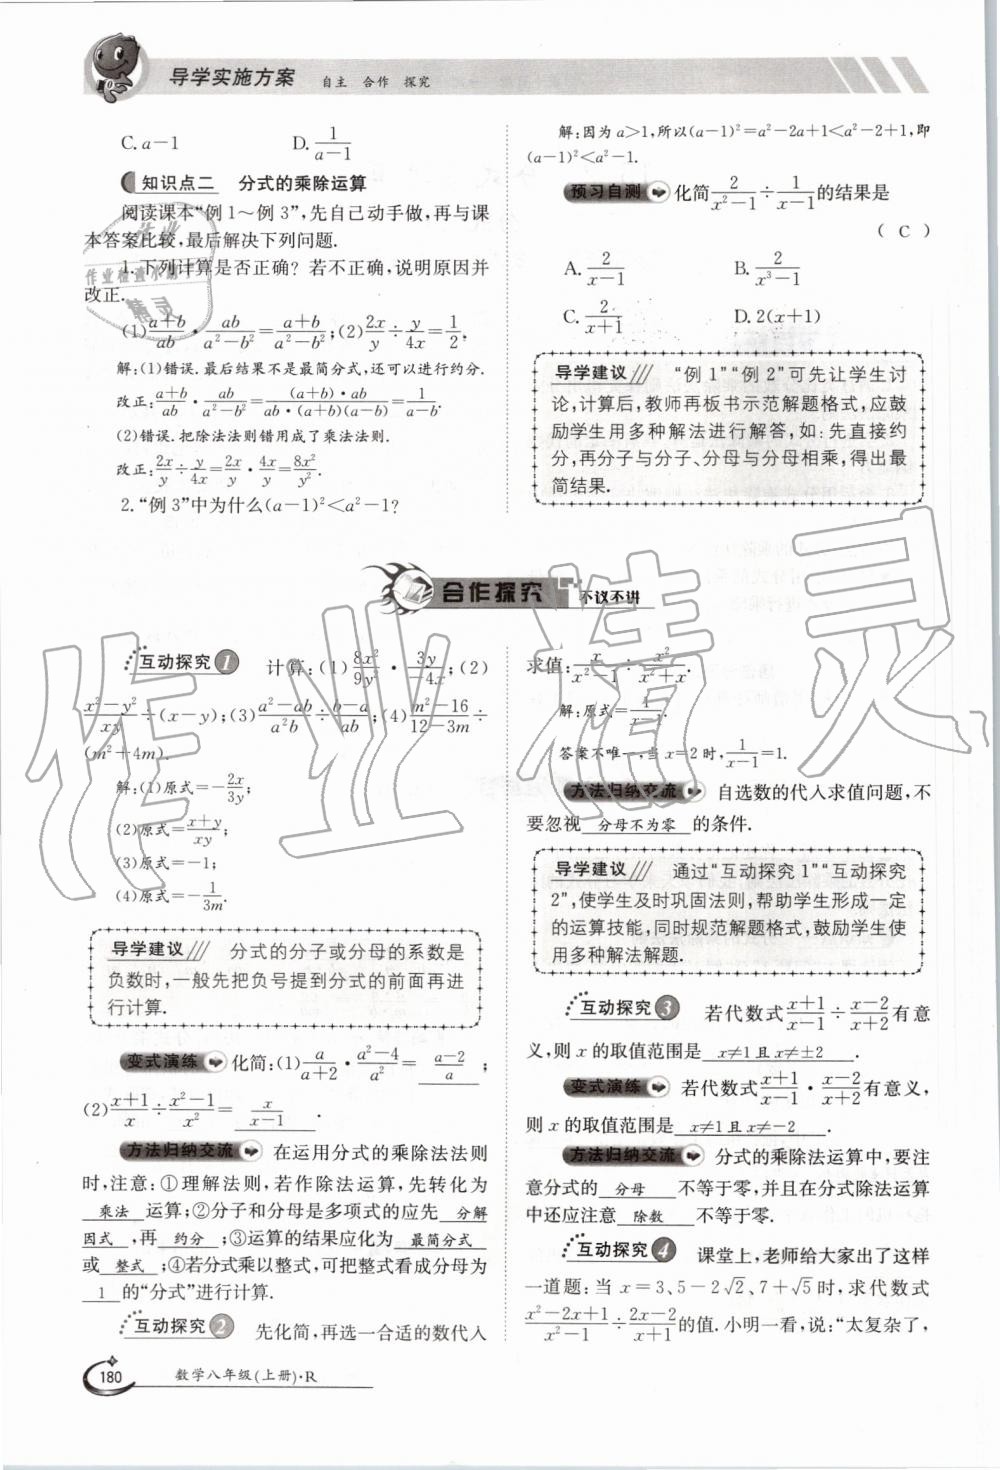 导学实施方案 自主 合作 探究
C. a－1 D. 1/(a－1)
知识点二 分式的乘除运算
阅读课本“例1～例3”,先自己动手做,再与课
本答案比较,最后解决下列问题.
1. 下列计算是否正确? 若不正确,说明原因并
改正.
(1) (a+b)/ab · ab/(a²－b²) = (a+b)/(a²－b²); (2) 2x/y ÷ y/4x = 1/2.
解:(1)错误.最后结果不是最简分式,还可以进行约分.
改正: (a+b)/ab · ab/(a²－b²) = (a+b)·ab/(ab·(a+b)(a－b)) = 1/(a－b).
(2)错误.把除法法则错用成了乘法法则.
改正: 2x/y ÷ y/4x = 2x/y · 4x/y = 8x²/y².
2.“例3”中为什么(a－1)²＜a²－1?
解:因为a>1,所以(a－1)²=a²－2a+1＜a²－2+1,即
(a－1)²＜a²－1.
预习自测 化简 2/(x²－1) ÷ 1/(x－1) 的结果是
( C )
A. 2/(x－1) B. 2/(x³－1)
C. 2/(x+1) D. 2(x+1)
导学建议 “例1”“例2”可先让学生讨
论,计算后,教师再板书示范解题格式,应鼓
励学生用多种解法进行解答,如:先直接约
分,再分子与分子、分母与分母相乘,得出最
简结果.
合作探究 不议不讲
互动探究1 计算:(1) 8x²/9y · 3y/(－4x); (2)
(x²－y²)/xy ÷(x－y); (3) (a²－ab)/a²b ÷ (b－a)/ab; (4) (m²－16)/(12－3m) ÷
(m²+4m).
解:(1)原式=－2x/3y;
(2)原式=(x+y)/xy;
(3)原式=－1;
(4)原式=－1/3m.
导学建议 分式的分子或分母的系数是
负数时,一般先把负号提到分式的前面再进
行计算.
变式演练 化简:(1) a/(a+2) · (a²－4)/a² = (a－2)/a ;
(2) (x+1)/x ÷ (x²－1)/x² = x/(x－1) .
方法归纳交流 在运用分式的乘除法法则
时,注意:①理解法则,若作除法运算,先转化为
乘法 运算;②分子和分母是多项式的应先 分解
因式 ,再 约分 ;③运算的结果应化为 最简分式
或 整式 ;④若分式乘以整式,可把整式看成分母为
1 的“分式”进行计算.
互动探究2 先化简,再选一合适的数代入
求值: x/(x²－1) ÷ x²/(x²+x).
解:原式=1/(x－1).
答案不唯一,当x=2时, 1/(x－1)=1.
方法归纳交流 自选数的代入求值问题,不
要忽视 分母不为零 的条件.
导学建议 通过“互动探究1”“互动探究
2”,使学生及时巩固法则,帮助学生形成一定
的运算技能,同时规范解题格式,鼓励学生使
用多种解法解题.
互动探究3 若代数式 (x+1)/(x－1) ÷ (x－2)/(x+2) 有意
义,则x的取值范围是 x≠1且x≠±2 .
变式演练 若代数式 (x+1)/(x－1) · (x－2)/(x+2) 有意义,
则x的取值范围是 x≠1且x≠－2 .
方法归纳交流 分式的乘除法运算中,要注
意分式的 分母 不等于零,并且在分式除法运算
中还应注意 除数 不等于零.
互动探究4 课堂上,老师给大家出了这样
一道题:当x=3、5－2√2、7+√5时,求代数式
(x²－2x+1)/(x²－1) ÷ (2x－2)/(x+1) 的值.小明一看,说:“太复杂了,
180 数学八年级(上册)·R
作业精灵